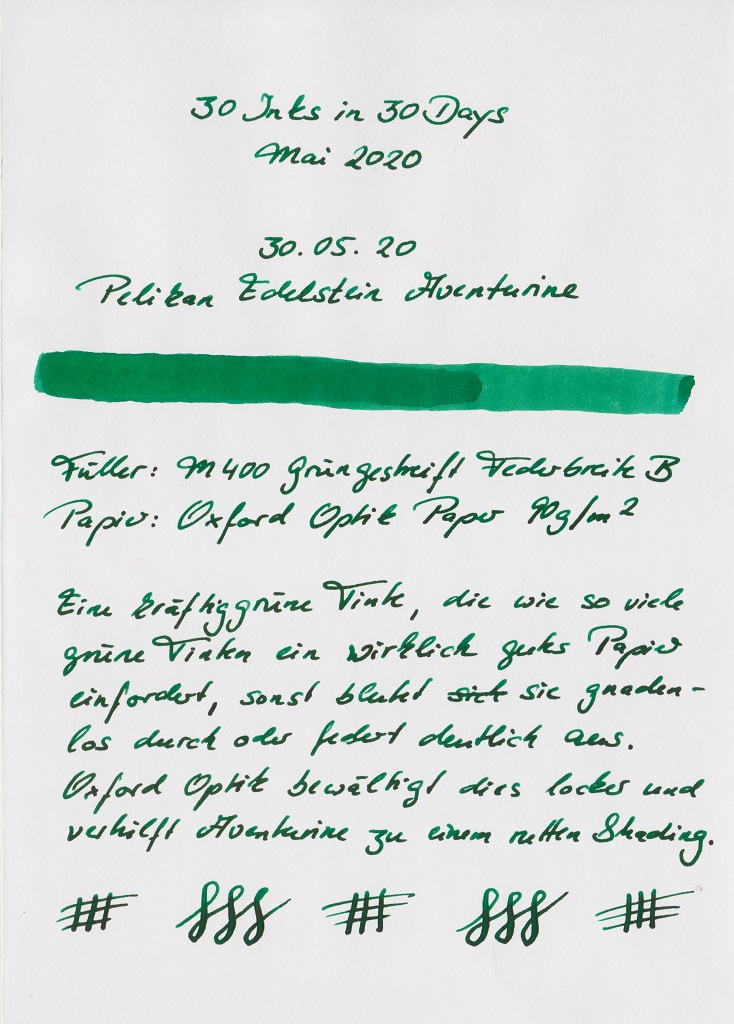 30 Inks in 30 Days
Mai 2020
30.05.20
Pelikan Edelstein Aventurine
Füller: M400 Grüngestreift Federbreite B
Papier: Oxford Optik Paper 90g/m²
Eine kräftiggrüne Tinte, die wie so viele
grüne Tinten ein wirklich gutes Papier
einfordert, sonst blutet sich sie gnaden-
los durch oder federt deutlich aus.
Oxford Optik bewältigt dies locker und
verhilft Aventurine zu einem netten Shading.